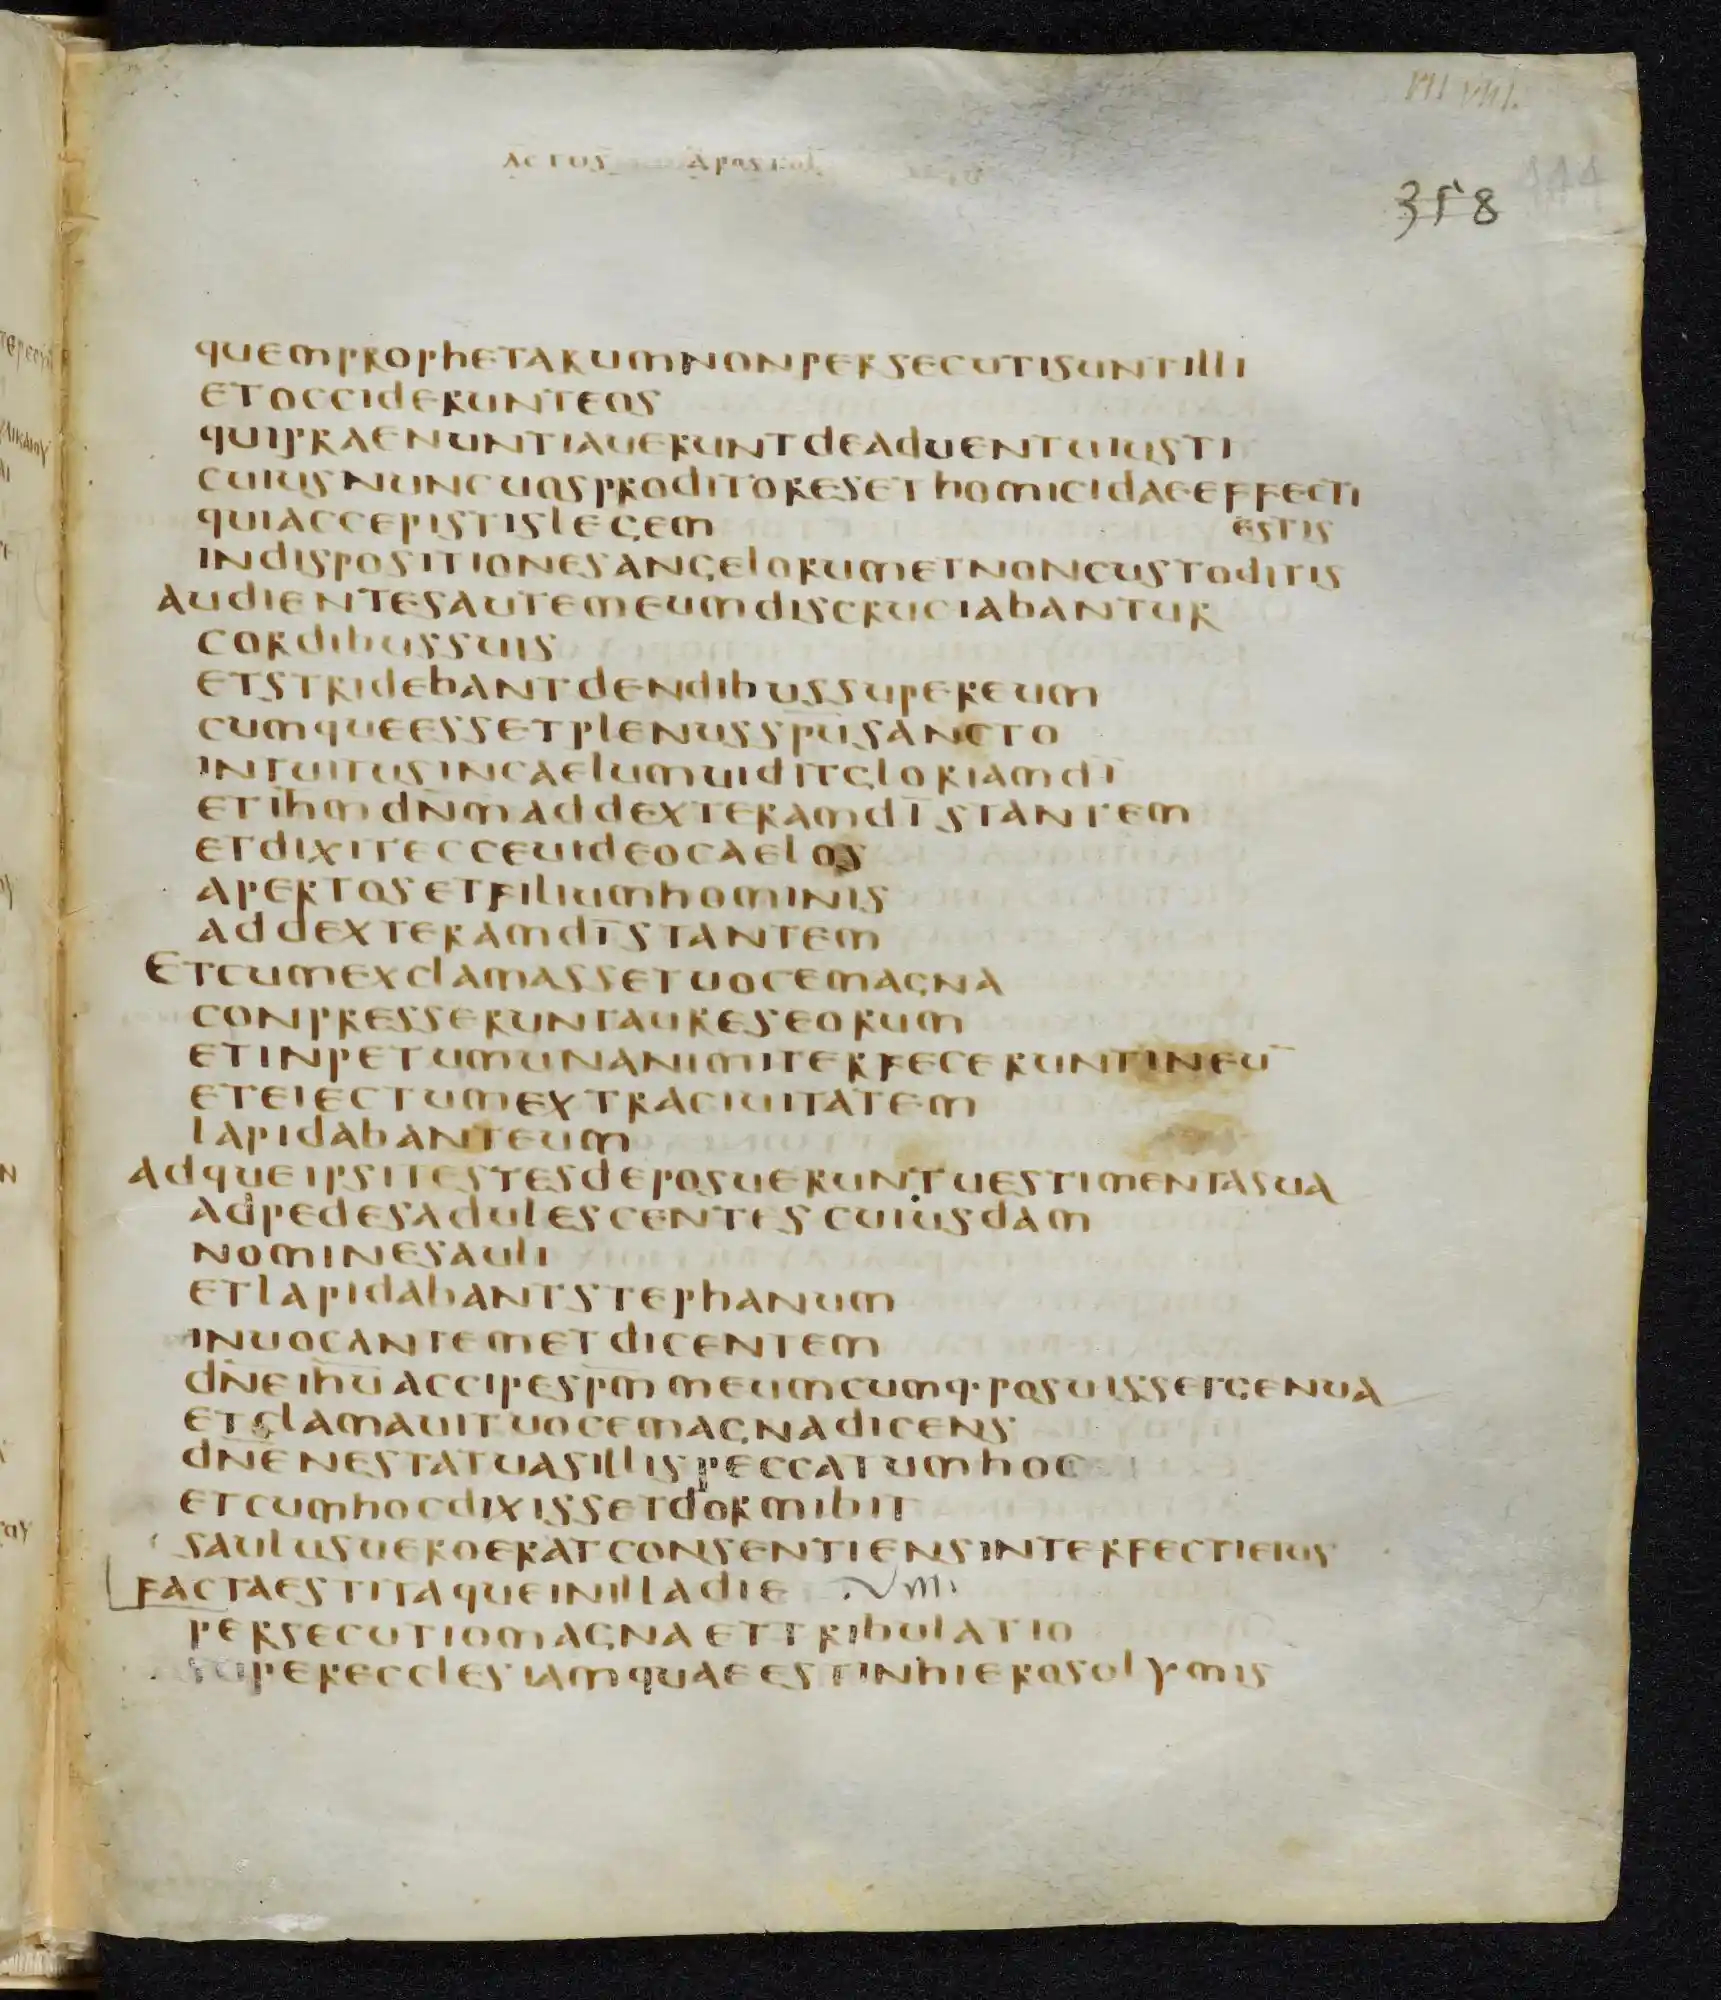 VII VIII.
ACTUS APOSTOL
358
444
QUEMPROPHETARUMNONPERSECUTISUNTILLI
ETOCCIDERUNTEOS
QUIPRAENUNTIAUERUNTDEADUENTUIUSTI
CUIUSNUNCUOSPRODITORESETHOMICIDAEEFFECTI
QUIACCEPISTISLEGEM ESTIS
INDISPOSITIONESANGELORUMETNONCUSTODITIS
AUDIENTESAUTEMEUMDISCRUCIABANTUR
CORDIBUSSUIS
ETSTRIDEBANTDENDIBUSSUPEREUM
CUMQUEESSETPLENUSSPU̅SANCTO
INTUITUSINCAELUMUIDITGLORIAMDI̅
ETIH̅MDN̅MADDEXTERAMDI̅STANTEM
ETDIXITECCEUIDEOCAELOS
APERTOSETFILIUMHOMINIS
ADDEXTERAMDI̅STANTEM
ETCUMEXCLAMASSETUOCEMAGNA
CONPRESSERUNTAURESEORUM
ETINPETUMUNANIMITERFECERUNTINEU̅
ETEIECTUMEXTRACIUITATEM
LAPIDABANTEUM
ADQUEIPSITESTESDEPOSUERUNTUESTIMENTASUA
ADPEDESADULESCENTESCUIUSDAM
NOMINESAULI
ETLAPIDABANTSTEPHANUM
INUOCANTEMETDICENTEM
DN̅EIHU̅ACCIPESPM̅MEUMCUMQ·POSUISSETGENUA
ETCLAMAUITUOCEMAGNADICENS
DN̅ENESTATUASILLISPECCATUMHOC
ETCUMHOCDIXISSETDORMIBIT
SAULUSUEROERATCONSENTIENSINTERFECTIEIUS
FACTAESTITAQUEINILLADIE .VIII.
PERSECUTIOMAGNAETTRIBULATIO
SUPERECCLESIAMQUAEESTINHIEROSOLYMIS